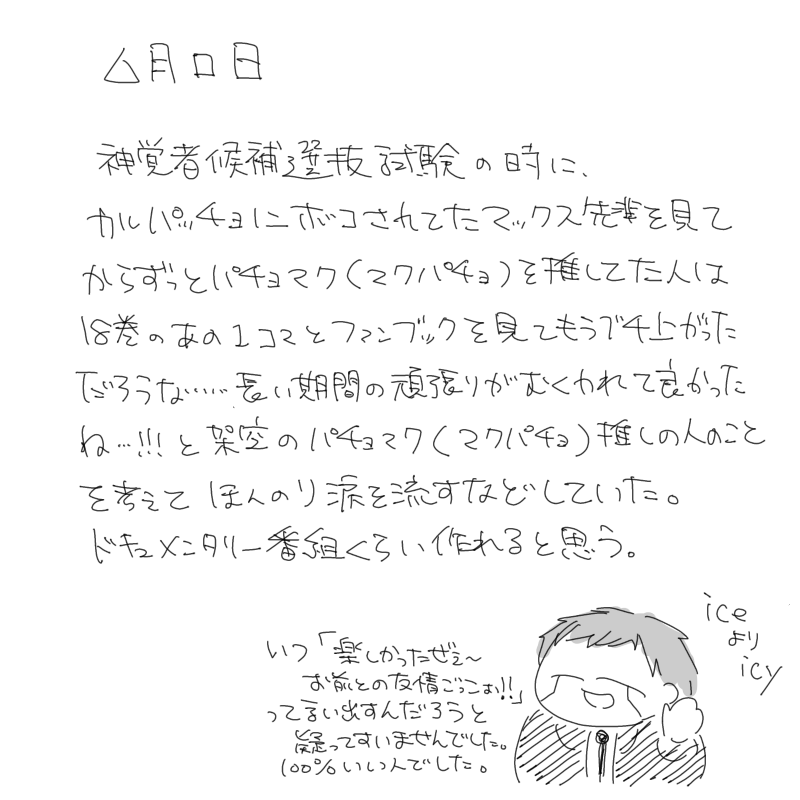 △月□日
神覚者候補選抜試験の時に、
カルパッチョにボコされてたマックス先輩を見て
からずっとパチョマク(マクパチョ)を推してた人は
18巻のあの1コマとファンブックを見てもうブチ上がった
だろうな……長い期間の頑張りがむくわれて良かった
ね…!!!と架空のパチョマク(マクパチョ)推しの人のこと
を考えて ほんのり涙を流すなどしていた。
ドキュメンタリー番組くらい作れると思う。
ice
より
icy
いつ「楽しかったぜぇ〜
お前との友情ごっこぉ!!」
って言い出すんだろうと
疑ってすいませんでした。
100%いい人でした。